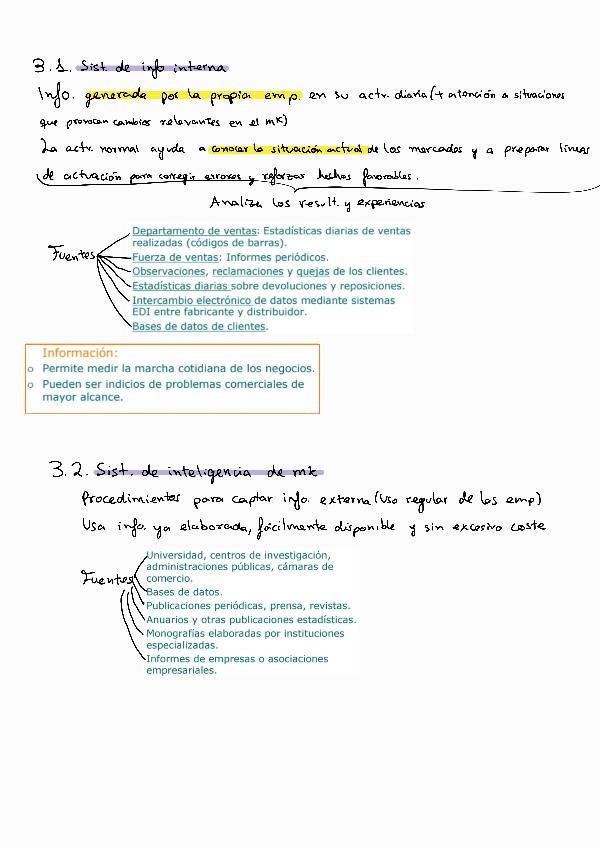 3.1. Sist. de info interna
Info. generada por la propia emp. en su actv. diaria (+ atención a situaciones
que provocan cambios relevantes en el mk)
La actv. normal ayuda a conocer la situación actual de los mercados y a preparar líneas
de actuación para corregir errores y reforzar hechos favorables.
Analiza los result. y experiencias
Fuentes
Departamento de ventas: Estadísticas diarias de ventas
realizadas (códigos de barras).
Fuerza de ventas: Informes periódicos.
Observaciones, reclamaciones y quejas de los clientes.
Estadísticas diarias sobre devoluciones y reposiciones.
Intercambio electrónico de datos mediante sistemas
EDI entre fabricante y distribuidor.
Bases de datos de clientes.
Información:
o Permite medir la marcha cotidiana de los negocios.
o Pueden ser indicios de problemas comerciales de
mayor alcance.
3.2. Sist. de inteligencia de mk
Procedimientos para captar info. externa (uso regular de los emp)
Usa info. ya elaborada, fácilmente disponible y sin excesivo coste
Fuentes
Universidad, centros de investigación,
administraciones públicas, cámaras de
comercio.
Bases de datos.
Publicaciones periódicas, prensa, revistas.
Anuarios y otras publicaciones estadísticas.
Monografías elaboradas por instituciones
especializadas.
Informes de empresas o asociaciones
empresariales.